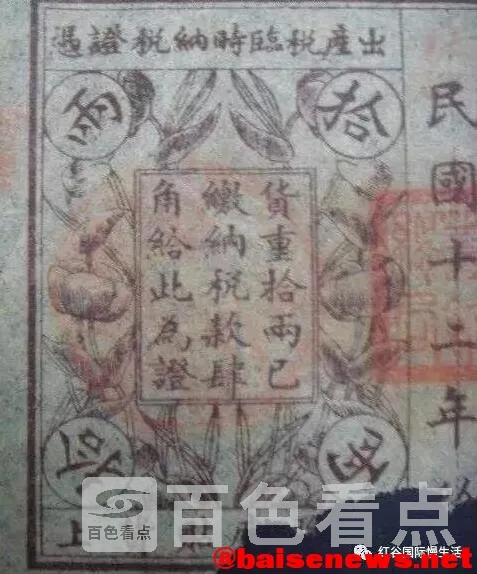 出產稅臨時納稅證憑
民國十二年
拾
兩
貨重拾兩已
繳納稅款肆
角給此為證
上
百色看点
百色看点
红谷国际慢生活
@baisenews.net